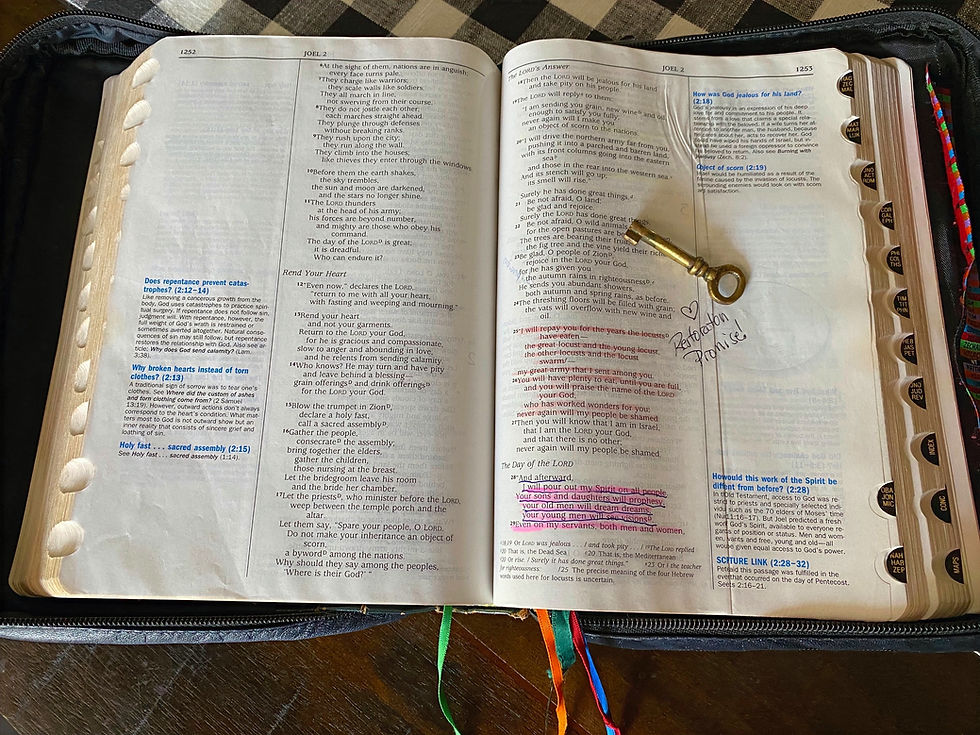 1252
JOEL 2
6At the sight of them, nations are in anguish;
every face turns pale.
7They charge like warriors;
they scale walls like soldiers.
They all march in line,
not swerving from their course.
8They do not jostle each other;
each marches straight ahead.
They plunge through defenses
without breaking ranks.
9They rush upon the city;
they run along the wall.
They climb into the houses;
like thieves they enter through the windows.
10Before them the earth shakes,
the sky trembles,
the sun and moon are darkened,
and the stars no longer shine.
11The LORD thunders
at the head of his army;
his forces are beyond number,
and mighty are those who obey his
command.
The day of the LORDᴰ is great;
it is dreadful.
Who can endure it?
Rend Your Heart
12"Even now," declares the LORD,
"return to me with all your heart,
with fasting and weeping and mourning."
13Rend your heart
and not your garments.
Return to the LORD your God,
for he is gracious and compassionate,
slow to anger and abounding in love,
and he relents from sending calamity.
14Who knows? He may turn and have pity
and leave behind a blessing—
grain offeringsᴰ and drink offeringsᴰ
for the LORD your God.
15Blow the trumpet in Zionᴰ,
declare a holy fast,
call a sacred assemblyᴰ.
16Gather the people,
consecrateᴰ the assembly;
bring together the elders,
gather the children,
those nursing at the breast.
Let the bridegroom leave his room
and the bride her chamber.
17Let the priestsᴰ, who minister before the LORD,
weep between the temple porch and the
altar.
Let them say, "Spare your people, O LORD.
Do not make your inheritance an object of
scorn,
a bywordᴰ among the nations.
Why should they say among the peoples,
'Where is their God?' "
Does repentance prevent catas-
trophes? (2:12–14)
Like removing a cancerous growth from the
body, God uses catastrophes to practice spir-
itual surgery. If repentance does not follow sin,
judgment will. With repentance, however, the
full weight of God's wrath is restrained or
sometimes averted altogether. Natural conse-
quences of sin may still follow, but repentance
restores the relationship with God. Also see ar-
ticle: Why does God send calamity? (Lam.
3:38).
Why broken hearts instead of torn
clothes? (2:13)
A traditional sign of sorrow was to tear one's
clothes. See Where did the custom of ashes
and torn clothing come from? (2 Samuel
13:19). However, outward actions don't always
correspond to the heart's condition. What mat-
ters most to God is not outward show but an
inner reality that consists of sincere grief and
loathing of sin.
Holy fast . . . sacred assembly (2:15)
See Holy fast . . . sacred assembly (1:14).
JOEL 2
1253
The LORD's Answer
18Then the LORD will be jealous for his land
and take pity on his people.
19The LORD will reply to them:
"I am sending you grain, new wineᴰ and oil,
enough to satisfy you fully;
never again will I make you
an object of scorn to the nations.
20"I will drive the northern army far from you,
pushing it into a parched and barren land,
with its front columns going into the eastern
sea
and those in the rear into the western sea.
And its stench will go up;
its smell will rise."
Surely he has done great things.
21 Be not afraid, O land;
be glad and rejoice.
Surely the LORD has done great things.
22 Be not afraid, O wild animals,
for the open pastures are
The trees are bearing their
the fig tree and the vine yield their
23Be glad, O people of Zionᴰ,
rejoice in the LORD your God,
for he has given you
the autumn rains in righteousness.
He sends you abundant showers,
both autumn and spring rains, as before.
24The threshing floors will be filled with grain;
the vats will overflow with new wine and
oil.
25"I will repay you for the years the locusts
have eaten—
the great locust and the young locust,
the other locusts and the locust
swarm—
my great army that I sent among you.
26You will have plenty to eat, until you are full,
and you will praise the name of the LORD
your God,
who has worked wonders for you;
never again will my people be shamed.
27Then you will know that I am in Israel,
that I am the LORD your God,
and that there is no other;
never again will my people be shamed.
The Day of the LORD
28"And afterward,
I will pour out my Spirit on all people.
Your sons and daughters will prophesy,
your old men will dream dreams,
your young men will see visionsᴰ.
29Even on my servants, both men and women,
18,19 Or LORD was jealous . . . / and took pity . . . / 19The LORD replied
20 That is, the Dead Sea 20 That is, the Mediterranean
20 Or rise. / Surely it has done great things." 23 Or / the teacher
for righteousness: 25 The precise meaning of the four Hebrew
words used here for locusts is uncertain.
Restoration
Promise!
How was God jealous for his land?
(2:18)
Object of scorn (2:19)
would be humiliated as a result of the
famine caused by the invasion of locusts. The
surrounding enemies would look on with scorn
and satisfaction.
How would this work of the Spirit be
different from before? (2:28)
(2:28–32)
this passage was fulfilled in the
occurred on the day of Pentecost.
2:16–21.
INDEX
CONC
MAPS